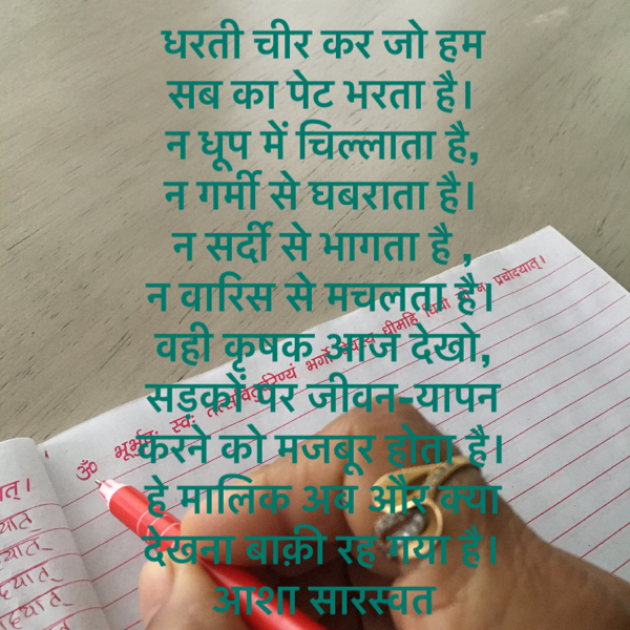 धरती चीर कर जो हम
सब का पेट भरता है।
न धूप में चिल्लाता है,
न गर्मी से घबराता है।
न सर्दी से भागता है ,
न वारिस से मचलता है।
वही कृषक आज देखो,
सड़कों पर जीवन-यापन
करने को मजबूर होता है।
हे मालिक अब और क्या
देखना बाक़ी रह गया है।
आशा सारस्वत
ॐ भूर्भुवः स्वः भर्गो धीमहि धियो न प्रचोदयात्।